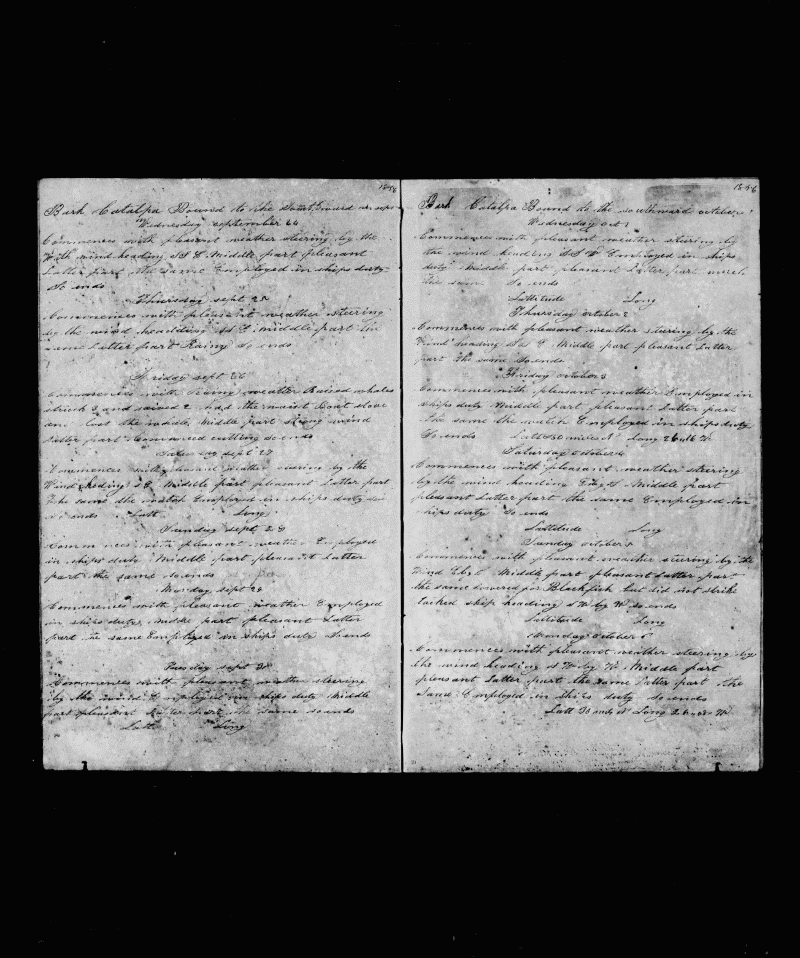 1856
Bark Catalpa Bound to the Southward in sept
Wednesday september 24
Commences with pleasant weather steering by the
With wind heading S S E Middle part pleasant
Latter part the same Employed in ships duty
So ends
Thursday sept 25
Commences with pleasant weather steering
by the wind heading S S E middle part the
same Latter part Rainy So ends
Friday sept 26
Commences with Rainy weather Raised whales
struck 3 and saved 2 had the waist Boat stove
Lost the Middle part Strong wind
Latter part Commenced cutting so ends
Saturday sept 27
Commences with pleasant weather steering by the
Wind heading S E Middle part pleasant Latter part
the same the watch Employed in ships duty
So ends Latt Long
Sunday sept 28
Commences with pleasant weather Employed
in ships duty Middle part pleasant Latter
part the same so ends
Monday sept 29
Commences with pleasant weather Employed
in ships duty Middle part pleasant Latter
part the same Employed in ships duty So ends
Tuesday sept 30
Commences with pleasant weather steering
by the wind Employed in ships duty Middle
part pleasant Latter part the same so ends
Latt Long
1856
Bark Catalpa Bound to the southward october
Wednesday oct 1
Commences with pleasant weather steering by
the wind heading S S W Employed in ships
duty Middle part pleasant Latter part much
the same So ends
Lattitude Long
Thursday october 2
Commences with pleasant weather steering by the
Wind heading S E Middle part pleasant Latter
part the same So ends
Friday october 3
Commences with pleasant weather Employed in
ships duty Middle part pleasant Latter part
the same the watch Employed in ships duty
So ends Latt 36 miles N Long 26 16 W
Saturday october 4
Commences with pleasant weather steering
by the wind heading E by S Middle part
pleasant Latter part the same Employed in
ships duty So ends
Lattitude Long
Sunday october 5
Commences with pleasant weather steering by the
Wind E by S Middle part pleasant Latter part
the same Lowered for Blackfish but did not strike
tacked ship heading S W by W so ends
Lattitude Long
Monday october 6
Commences with pleasant weather steering by
the wind heading S W by W Middle part
pleasant Latter part the same Latter part the
Same Employed in ships duty so ends
Latt N Long W